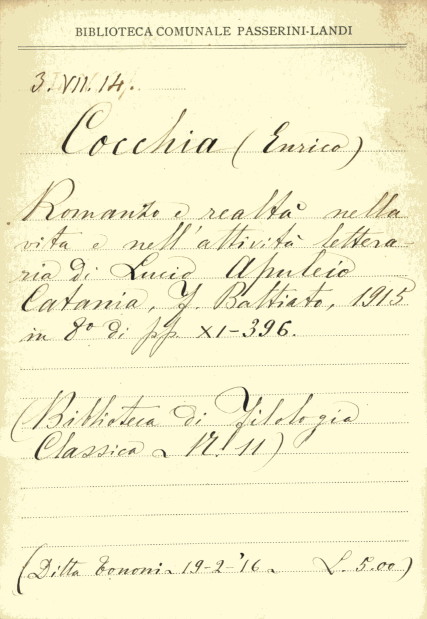 BIBLIOTECA COMUNALE PASSERINI-LANDI
3. VII. 14.
Cocchia (Enrico)
Romanzo e realtà nella
vita e nell'attività lettera-
ria di Lucio Apuleio
Catania, F. Battiato, 1915
in 8° di pp. XI-396.
(Biblioteca di Filologia
Classica ~ N. 11)
(Ditta Tononi ~ 19-2-'16 ~ L. 5.00)